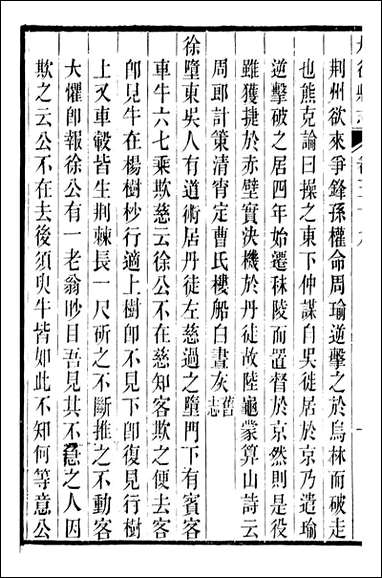 荆州欲來爭鋒孫權命周瑜逆擊之於烏林而破走
也熊克論曰操之東下仲謀自吳徙居於京乃遣瑜
逆擊破之居四年始遷秣陵而置督於京然則是役
雖獲捷於赤壁實決機於丹徒故陸龜蒙算山詩云
周郎計策清宵定曹氏樓船白晝灰舊志
徐墮東吳人有道術居丹徒左慈過之墮門下有賓客
車牛六七乘欺慈云徐公不在慈知客欺之便去客
卽見牛在楊樹杪行適上樹卽不見下卽復見行樹
上又車轂皆生荆棘長一尺斫之不斷推之不動客
大懼卽報徐公有一老翁眇目吾見其不急之人因
欺之云公不在去後須臾牛皆如此不知何等意公